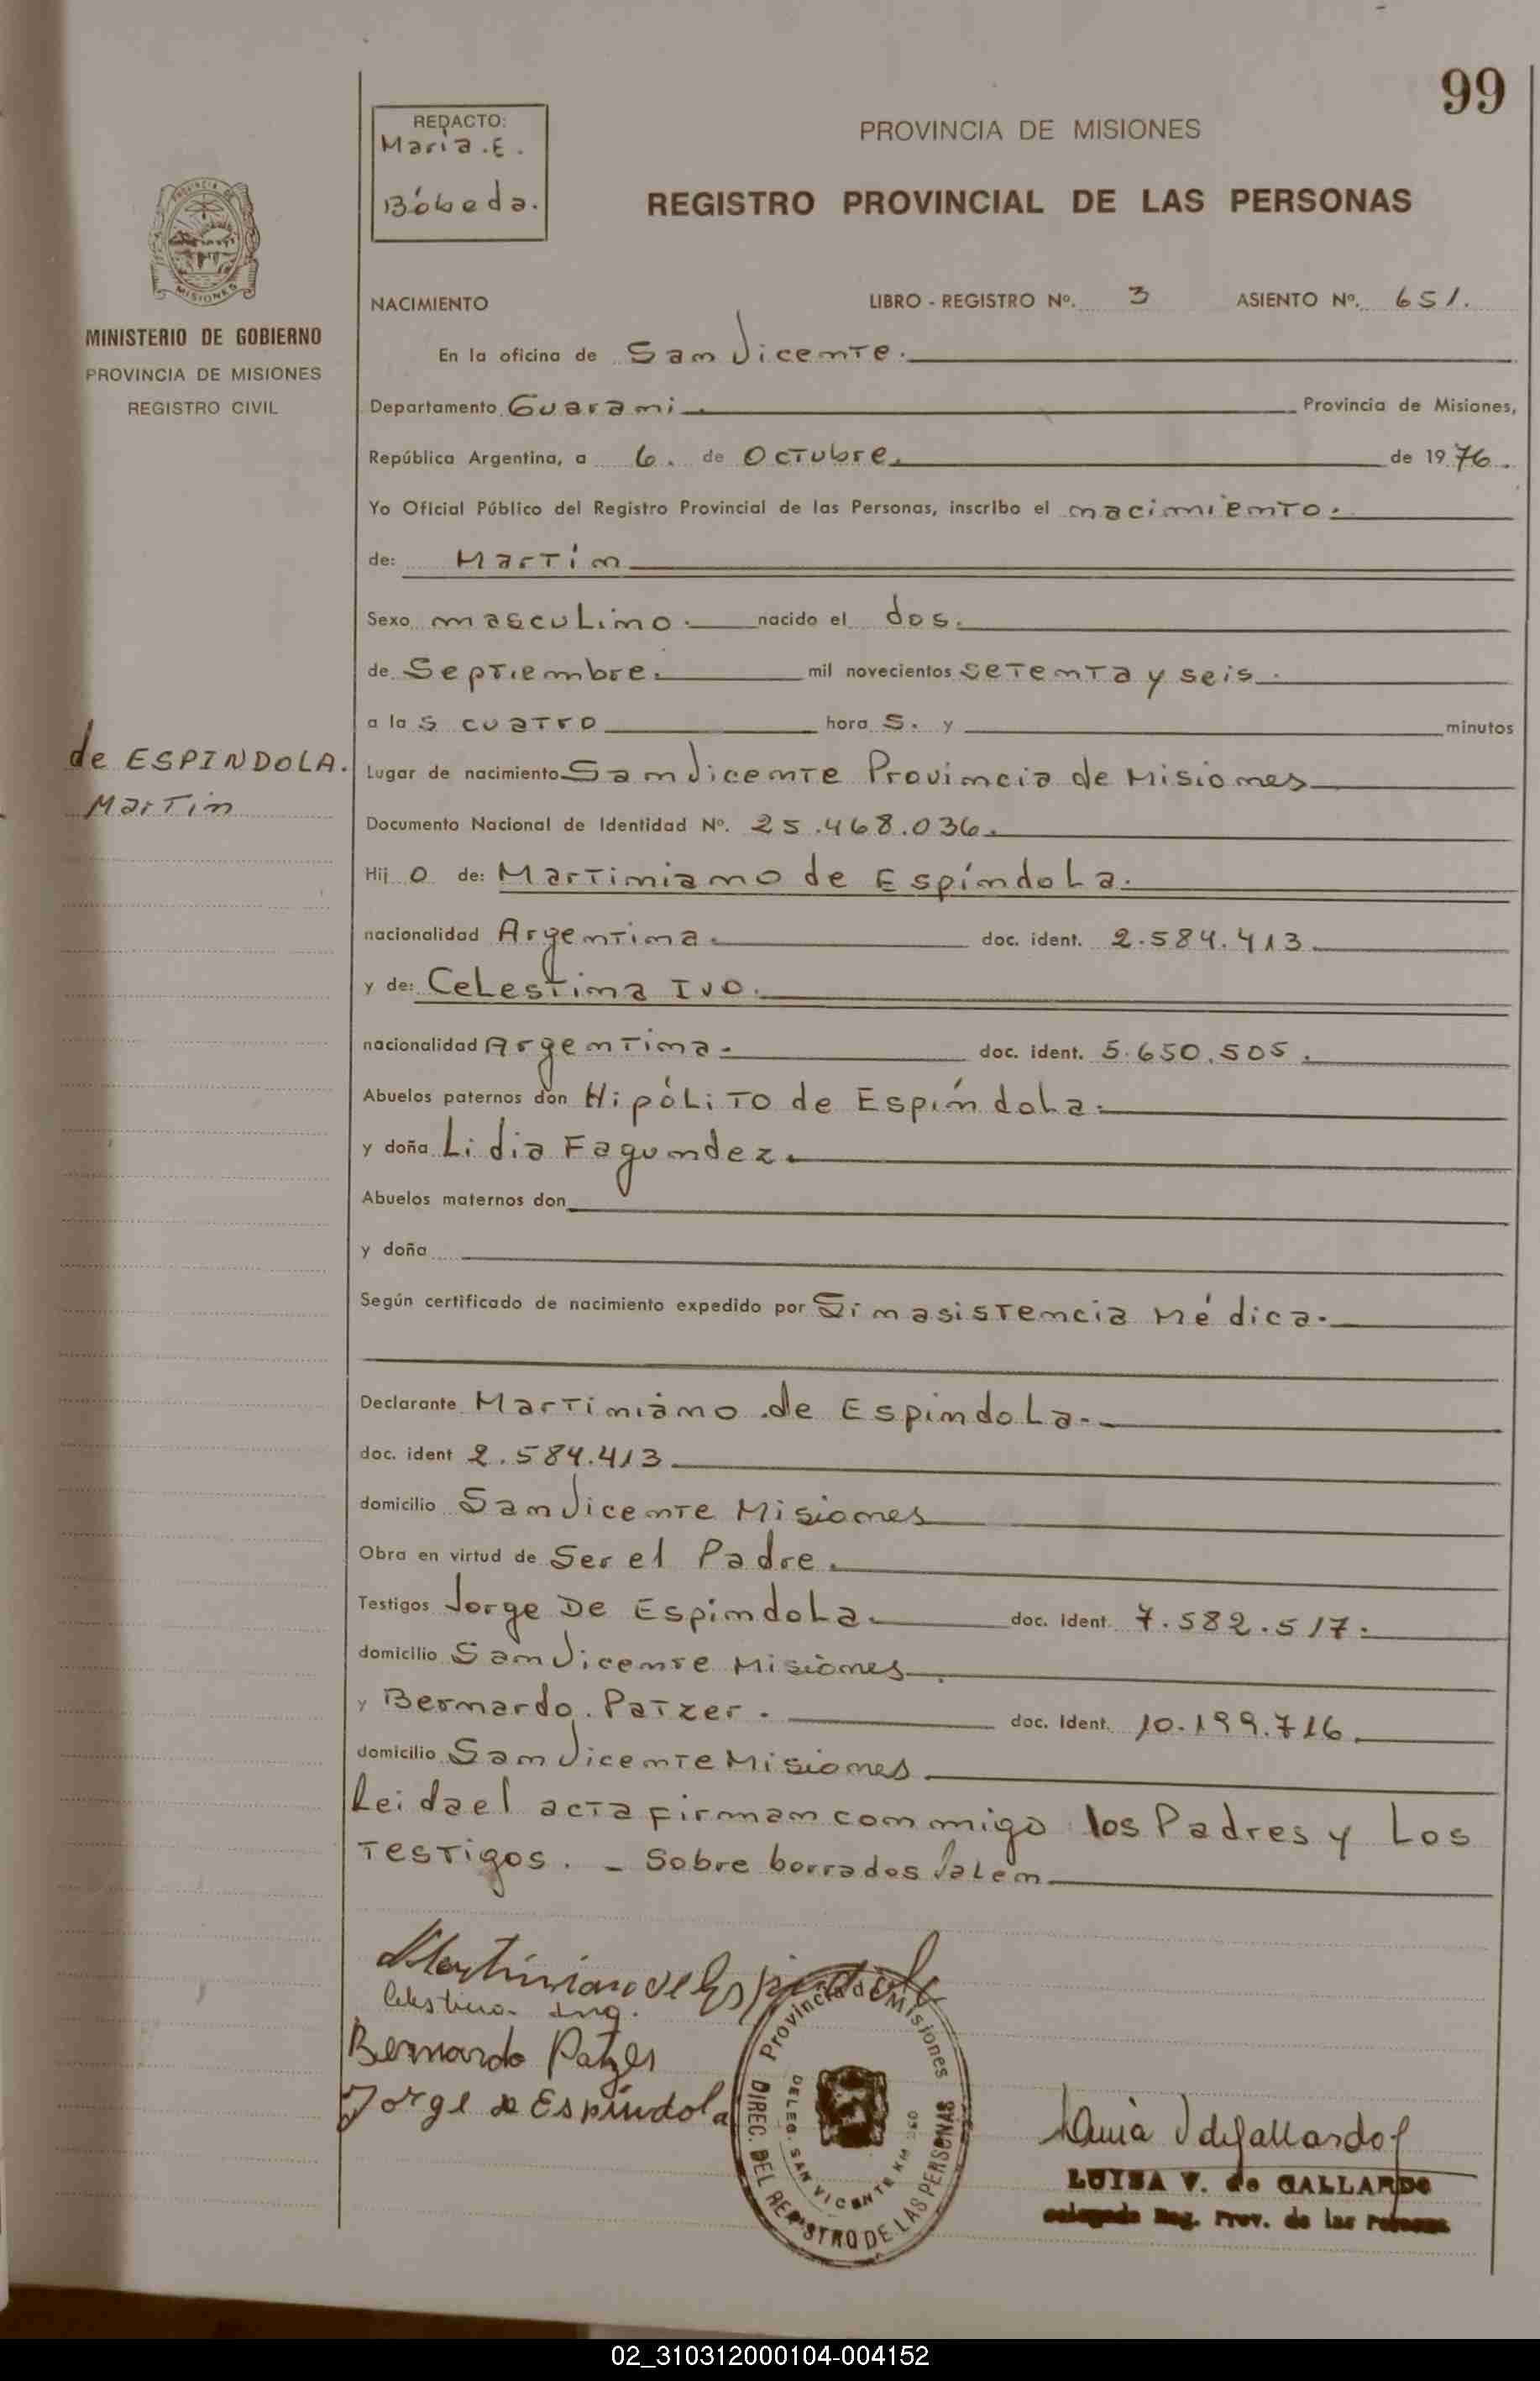 99
REDACTO:
Maria.E.
Bóbeda.
PROVINCIA DE MISIONES
REGISTRO PROVINCIAL DE LAS PERSONAS
PROVINCIA DE
MISIONES
MINISTERIO DE GOBIERNO
PROVINCIA DE MISIONES
REGISTRO CIVIL
NACIMIENTO LIBRO - REGISTRO Nº. 3 ASIENTO Nº. 651.
En la oficina de San Vicente.
Departamento Guarani Provincia de Misiones,
República Argentina, a 6. de Octubre. de 1976.
Yo Oficial Público del Registro Provincial de las Personas, inscribo el nacimiento.
de: Martín
Sexo masculino. nacido el dos.
de Septiembre. mil novecientos setenta y seis.
a las cuatro hora s. y minutos
de ESPINDOLA.
Martin
Lugar de nacimiento San Vicente Provincia de Misiones
Documento Nacional de Identidad Nº. 25.468.036.
Hij o de: Martiniano de Espíndola.
nacionalidad Argentina. doc. ident. 2.584.413
y de: Celestina Ivo.
nacionalidad Argentina. doc. ident. 5.650.505.
Abuelos paternos don Hipólito de Espíndola.
y doña Lidia Fagundez.
Abuelos maternos don
y doña
Según certificado de nacimiento expedido por Sin asistencia Médica.
Declarante Martiniano de Espindola.
doc. ident 2.584.413
domicilio San Vicente Misiones
Obra en virtud de Ser el Padre.
Testigos Jorge De Espindola. doc. Ident. 7.582.517.
domicilio San Vicente Misiones
y Bernardo. Patzer. doc. Ident. 10.199.716.
domicilio San Vicente Misiones
Leida el acta firman conmigo los Padres y Los
Testigos. - Sobre borrados Valen
Martiniano de Espindola
Celestina
Bernardo Patzer
Jorge de Espíndola
Provincia de Misiones
DIREC. DEL REGISTRO DE LAS PERSONAS
DELEG. SAN VICENTE KM
LUISA V. de GALLARDO
Reg. Prov. de las Personas
02_310312000104-004152